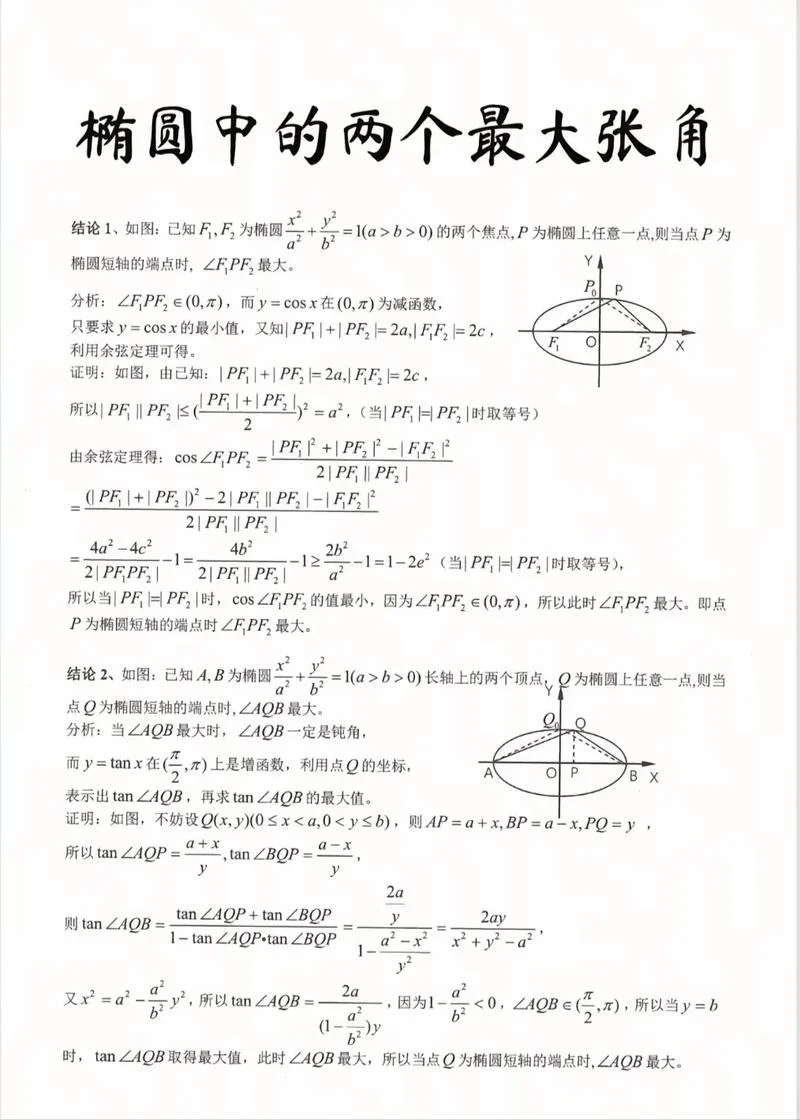 椭圆中的两个最大张角
结论 1、如图：已知 F₁, F₂ 为椭圆 x²/a² + y²/b² = 1(a > b > 0) 的两个焦点, P 为椭圆上任意一点,则当点 P 为
椭圆短轴的端点时, ∠F₁PF₂ 最大。
分析：∠F₁PF₂ ∈ (0, π)，而 y = cos x 在 (0, π) 为减函数，
只要求 y = cos x 的最小值，又知 | PF₁ | + | PF₂ |= 2a,| F₁F₂ |= 2c，
利用余弦定理可得。
Y
P₀ P
F₁ O F₂ X
证明：如图，由已知：| PF₁ | + | PF₂ |= 2a,| F₁F₂ |= 2c，
所以 | PF₁ || PF₂ |≤ ((| PF₁ | + | PF₂ |)/2)² = a²，（当 | PF₁ |=| PF₂ | 时取等号）
由余弦定理得：cos ∠F₁PF₂ = (| PF₁ |² + | PF₂ |² − | F₁F₂ |²)/(2 | PF₁ || PF₂ |)
= ((| PF₁ | + | PF₂ |)² − 2 | PF₁ || PF₂ | − | F₁F₂ |²)/(2 | PF₁ || PF₂ |)
= (4a² − 4c²)/(2 | PF₁PF₂ |) − 1 = 4b²/(2 | PF₁ || PF₂ |) − 1 ≥ 2b²/a² − 1 = 1 − 2e²（当 | PF₁ |=| PF₂ | 时取等号），
所以当 | PF₁ |=| PF₂ | 时，cos ∠F₁PF₂ 的值最小，因为 ∠F₁PF₂ ∈ (0, π)，所以此时 ∠F₁PF₂ 最大。即点
P 为椭圆短轴的端点时 ∠F₁PF₂ 最大。
结论 2、如图：已知 A, B 为椭圆 x²/a² + y²/b² = 1(a > b > 0) 长轴上的两个顶点，Q 为椭圆上任意一点,则当
点 Q 为椭圆短轴的端点时, ∠AQB 最大。
分析：当 ∠AQB 最大时，∠AQB 一定是钝角，
而 y = tan x 在 (π/2, π) 上是增函数，利用点 Q 的坐标，
表示出 tan ∠AQB，再求 tan ∠AQB 的最大值。
Y
Q₀ Q
A O P B X
证明：如图，不妨设 Q(x, y)(0 ≤ x < a, 0 < y ≤ b)，则 AP = a + x, BP = a − x, PQ = y ，
所以 tan ∠AQP = (a + x)/y, tan ∠BQP = (a − x)/y，
则 tan ∠AQB = (tan ∠AQP + tan ∠BQP)/(1 − tan ∠AQP•tan ∠BQP) = (2a/y)/(1 − (a² − x²)/y²) = 2ay/(x² + y² − a²)，
又 x² = a² − (a²/b²)y²，所以 tan ∠AQB = 2a/((1 − a²/b²)y)，因为 1 − a²/b² < 0，∠AQB ∈ (π/2, π)，所以当 y = b
时，tan ∠AQB 取得最大值，此时 ∠AQB 最大，所以当点 Q 为椭圆短轴的端点时, ∠AQB 最大。